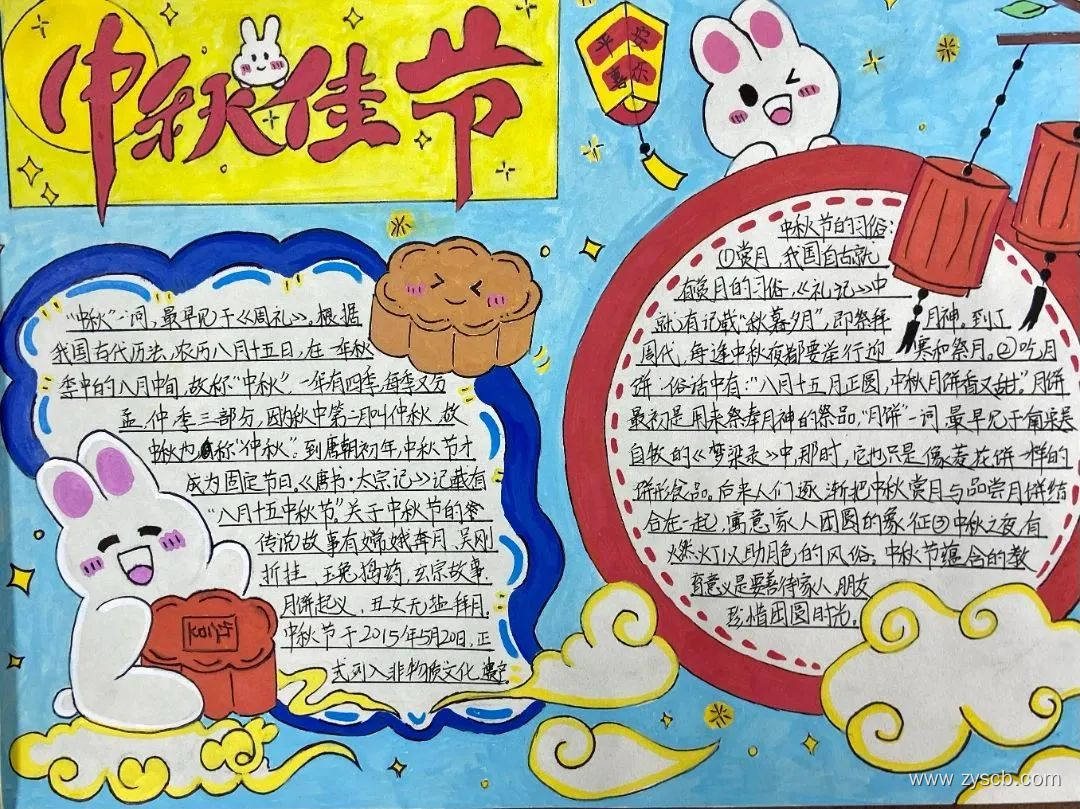 中秋佳节
平安
喜乐
“中秋”一词,最早见于《周礼》。根据
我国古代历法,农历八月十五日,在一年秋
季中的八月中间,故称“中秋”。一年有四季,每季又分
孟、仲、季三部分,因为秋中第二月叫仲秋,故
中秋也称“仲秋”。到唐朝初年,中秋节才
成为固定节日。《唐书·太宗记》记载有
“八月十五中秋节”。关于中秋节的
传说故事有嫦娥奔月、吴刚
折挂、玉兔捣药、玄宗故事、
月饼起义、丑女无盐拜月。
中秋节于2015年5月20日,正
式列入非物质文化遗产。
中秋节的习俗:
①赏月 我国自古就
有赏月的习俗,《礼记》中
就有记载“秋暮夕月”,即祭拜月神。到了
周代,每逢中秋夜都要举行迎寒和祭月。②吃月
饼:俗话中有:“八月十五月正圆,中秋月饼香又甜”。月饼
最初是用来祭奉月神的祭品,“月饼”一词,最早见于南宋吴
自牧的《梦梁录》中,那时,它也只是像菱花饼一样的
饼形食品。后来人们逐渐把中秋赏月与品尝月饼结
合在一起,寓意家人团圆的象征③中秋之夜有
燃灯以助月色的风俗。中秋节蕴含的教
育意义是要善待家人、朋友
珍惜团圆时光。
www.zyscb.com